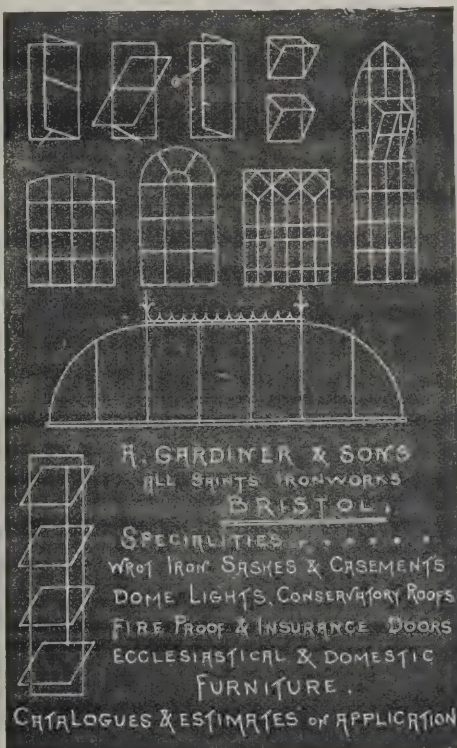 A. GARDINER & SONS
ALL SAINTS IRONWORKS
BRISTOL.
SPECIALITIES . . . . . .
WROT IRON SASHES & CASEMENTS
DOME LIGHTS, CONSERVATORY ROOFS
FIRE PROOF & INSURANCE DOORS
ECCLESIASTICAL & DOMESTIC
FURNITURE.
CATALOGUES & ESTIMATES ON APPLICATION